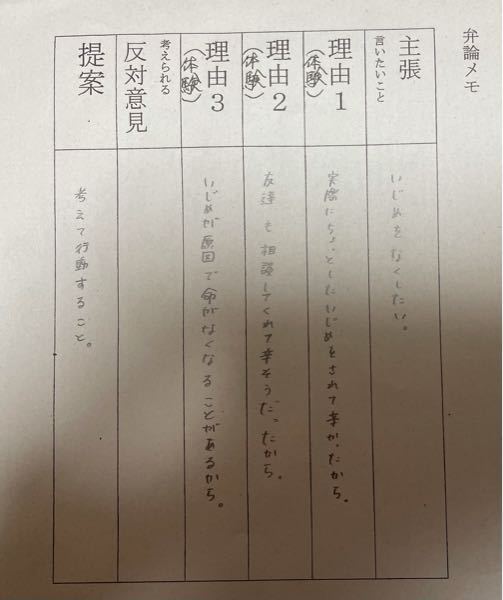 弁論メモ
主張
言いたいこと
いじめをなくしたい。
理由1
(体験)
実際にちょっとしたいじめをされて辛かったから。
理由2
(体験)
友達も相談してくれて辛そうだったから。
理由3
(体験)
いじめが原因で命がなくなることがあるから。
考えられる
反対意見
提案
考えて行動すること。